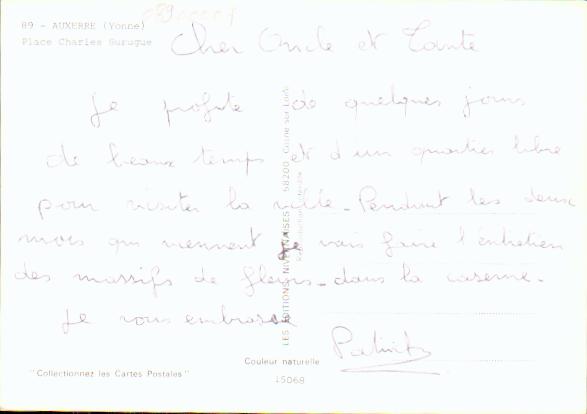 89 - AUXERRE (Yonne)
Place Charles Surugue
Cher Oncle et Tante
Je profite de quelques jours
de beaux temps et d'un quartier libre
pour visiter la ville - Pendant les deux
mois qui viennent je vais faire l'entretien
des massifs de fleurs - dans la caserne -
Je vous embrasse
LES EDITIONS NIVERNAISES - 58200 Cosne sur Loire
Reproduction interdite
Couleur naturelle
"Collectionnez les Cartes Postales"
15068